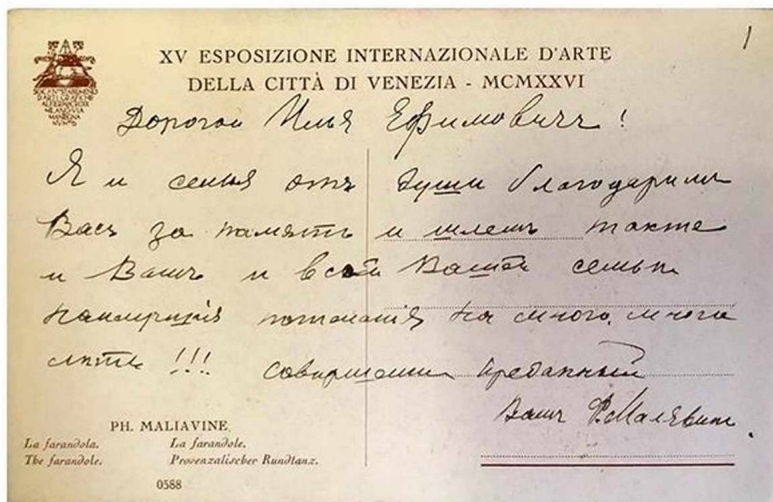 1
XV ESPOSIZIONE INTERNAZIONALE D'ARTE
DELLA CITTÀ DI VENEZIA - MCMXXVI
Дорогой Илья Ефимовичъ!
Я и семья отъ души благодаримъ
Васъ за память и шлемъ также
и Вамъ и всей Вашей семьѣ
наилучшія пожеланія на много, много
лѣтъ!!! совершенно преданный
Вашъ Ф. Малявинъ.
PH. MALIAVINE
La farandola. La farandole.
The farandole. Provenzalischer Rundtanz.
0588